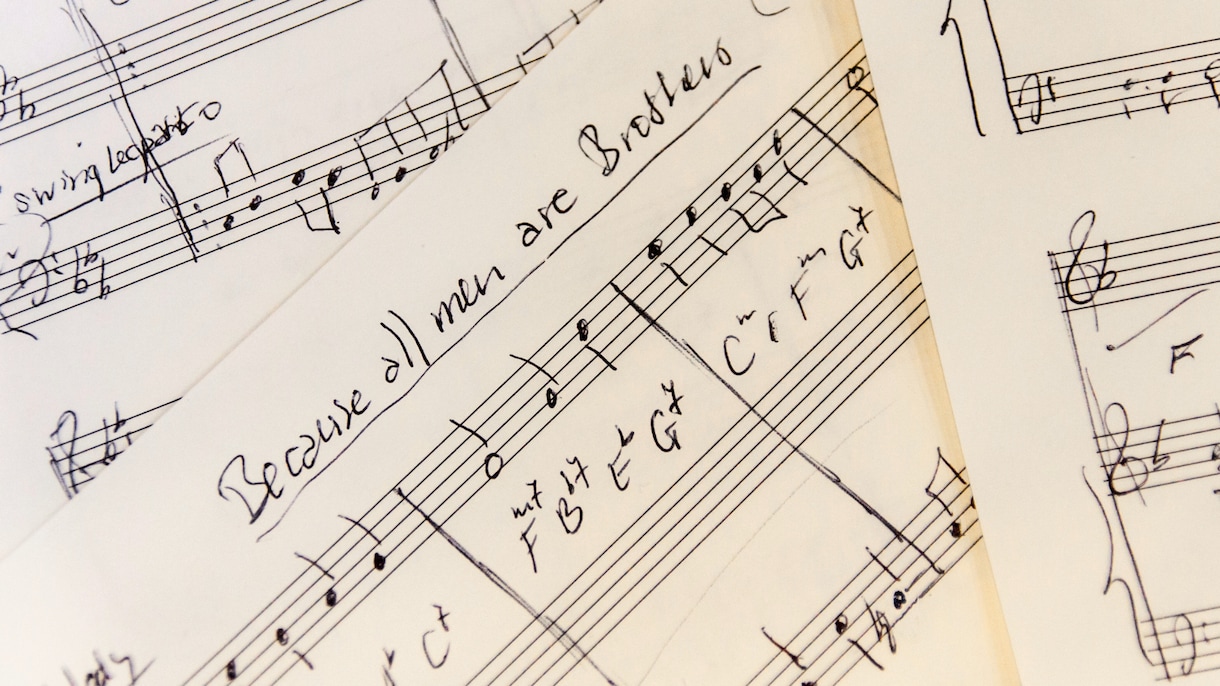 swing
Because all men are Brothers
Fm7 Bb7 Eb G7
Cm Fm G7
C7
F